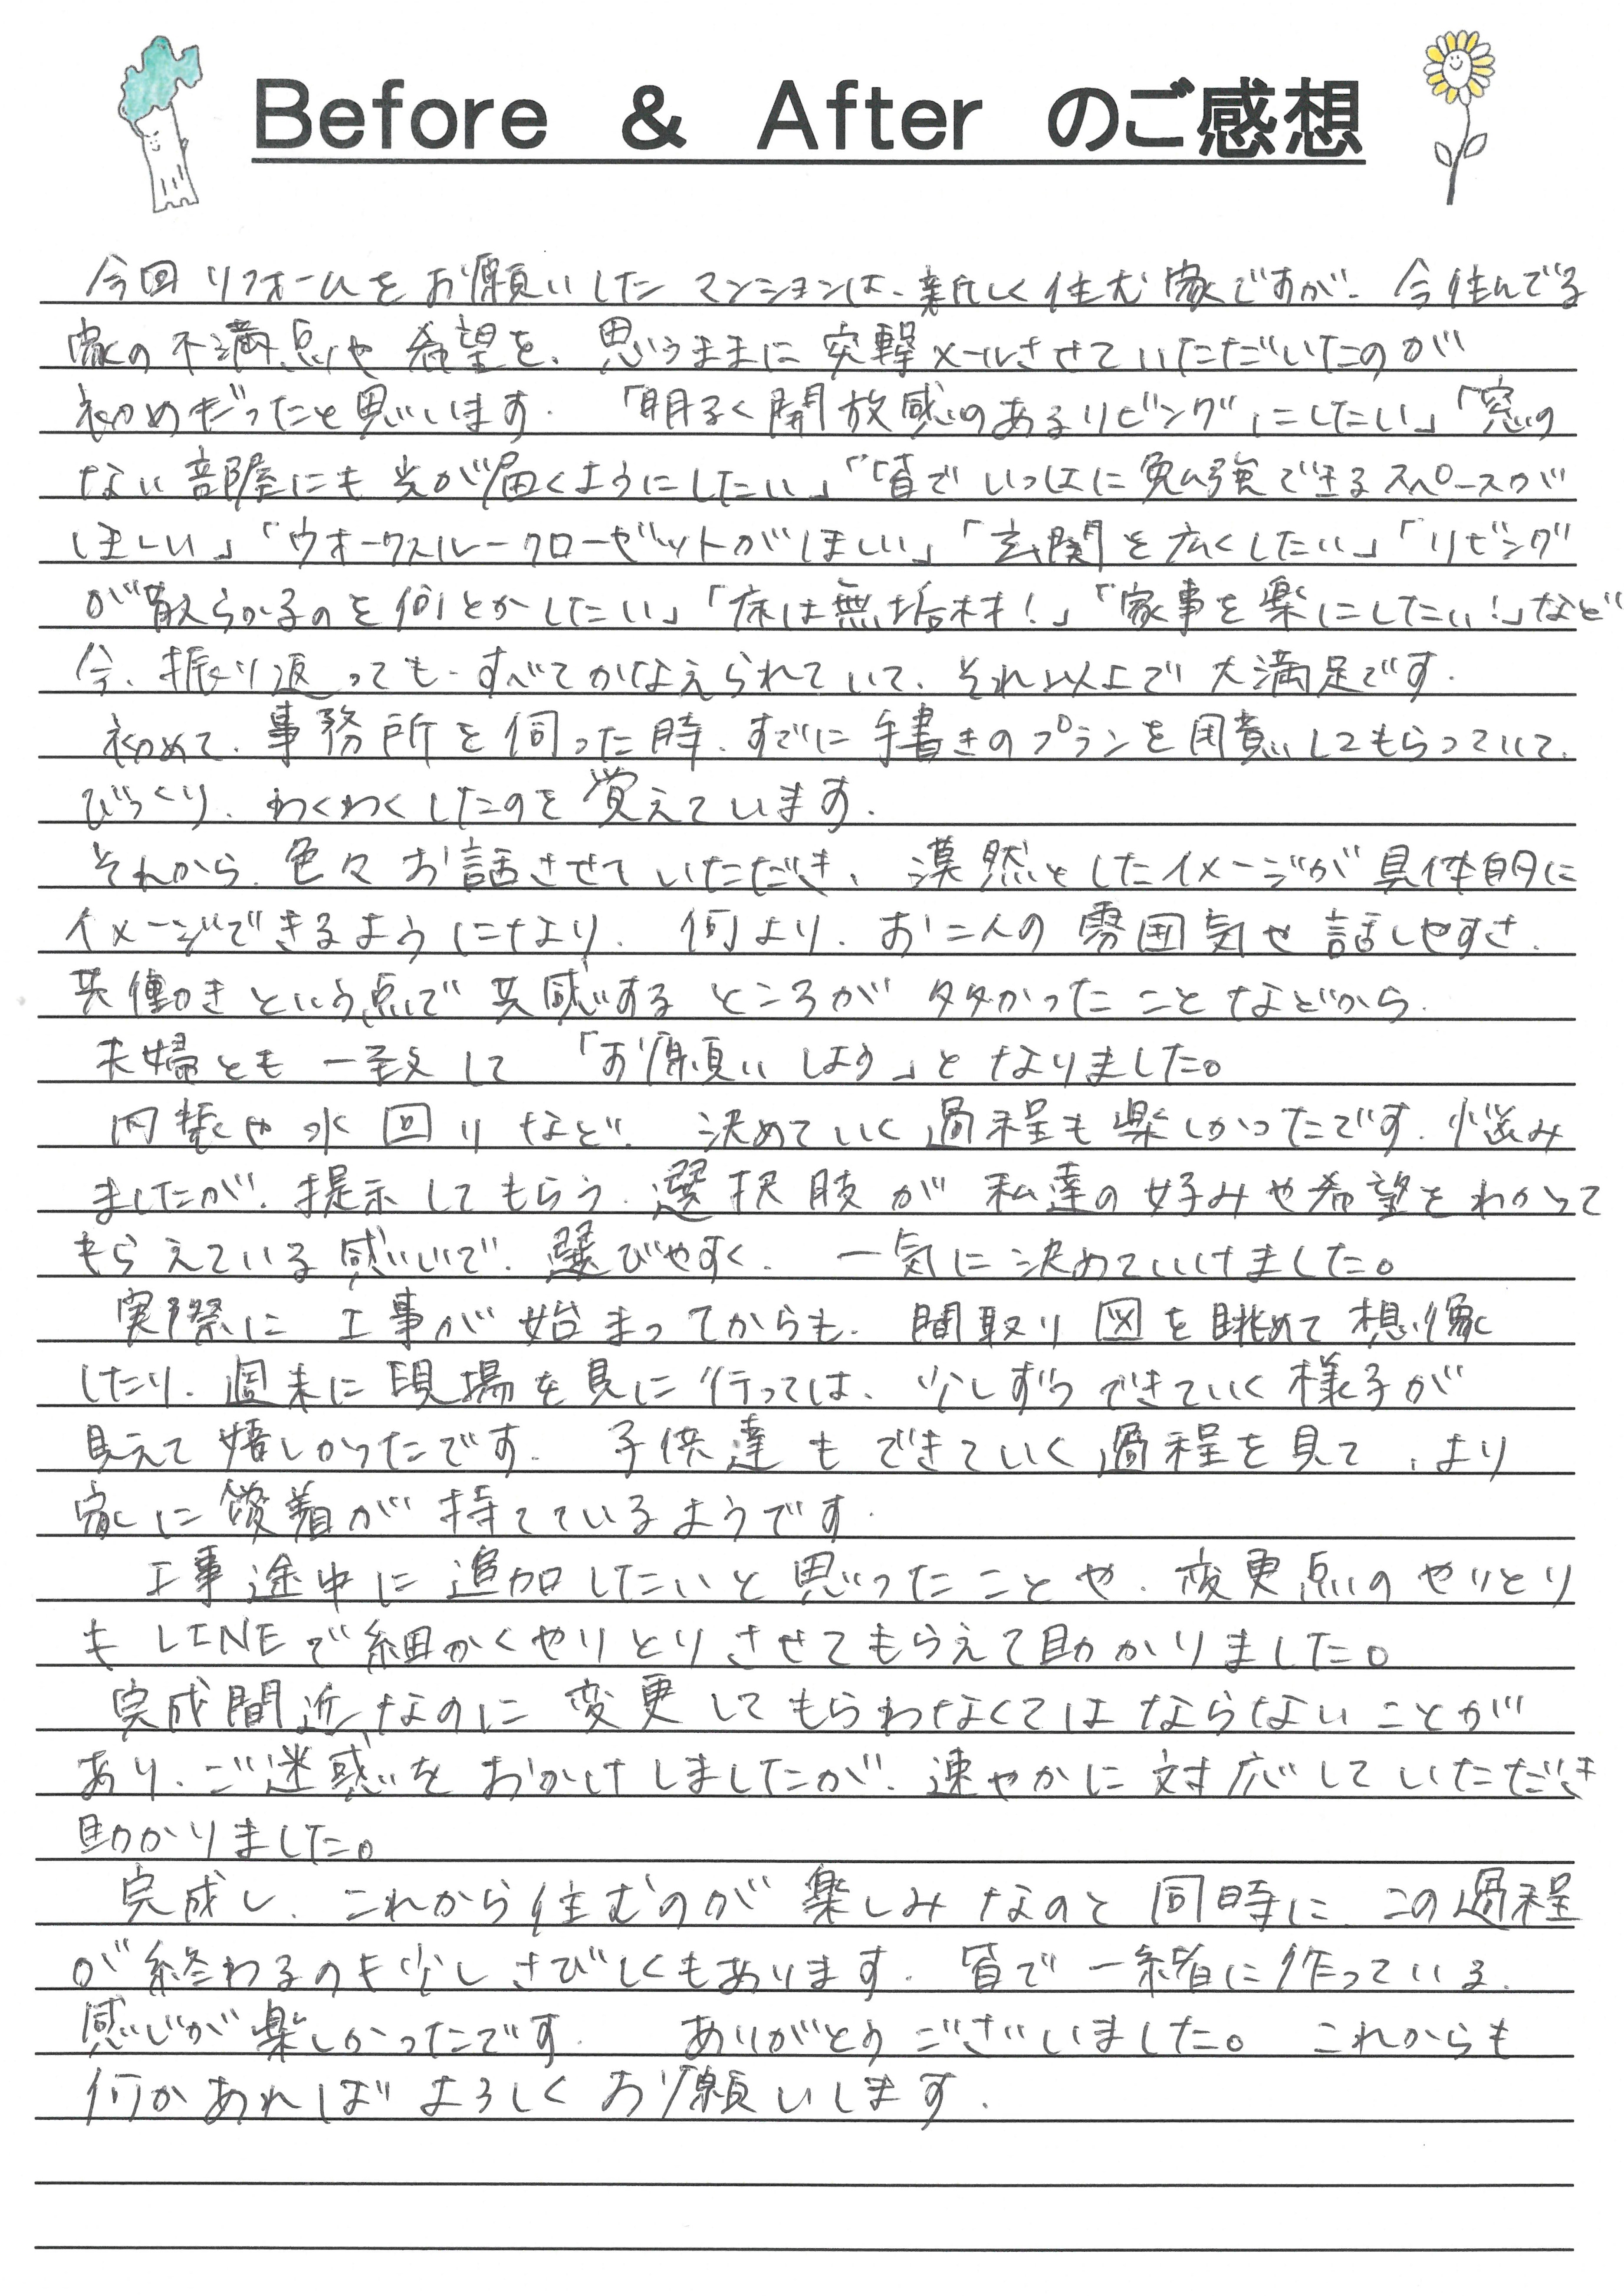 Before & After のご感想
今回リフォームをお願いしたマンションは、新しく住む家ですが、今住んでる
家の不満点や希望を、思うままに突撃メールさせていただいたのが
初めだったと思います。「明るく開放感のあるリビングにしたい」「窓の
ない部屋にも光が届くようにしたい」「皆でいっしょに勉強できるスペースが
ほしい」「ウォークスルークローゼットがほしい」「玄関を広くしたい」「リビング
が散らかるのを何とかしたい」「床は無垢材！」「家事を楽にしたい！」など
今、振り返っても、すべてかなえられていて、それ以上で大満足です。
初めて、事務所を伺った時、すでに手書きのプランを用意してもらっていて、
びっくり、わくわくしたのを覚えています。
それから、色々お話させていただき、漠然としたイメージが具体的に
イメージできるようになり、何より、お二人の雰囲気や話しやすさ、
共働きという点で共感するところが多かったことなどから、
夫婦とも一致して「お願いしよう」となりました。
内装や水回りなど、決めていく過程も楽しかったです。悩み
ましたが、提示してもらう選択肢が私達の好みや希望をわかって
もらえている感じで、選びやすく、一気に決めていけました。
実際に工事が始まってからも、間取り図を眺めて想像
したり、週末に現場を見に行っては、少しずつできていく様子が
見えて嬉しかったです。子供達もできていく過程を見て、より
家に愛着が持てているようです。
工事途中に追加したいと思ったことや、変更点のやりとり
もLINEで細かくやりとりさせてもらえて助かりました。
完成間近なのに変更してもらわなくてはならないことが
あり、ご迷惑をおかけしましたが、速やかに対応していただき
助かりました。
完成し、これから住むのが楽しみなのと同時に、この過程
が終わるのも少しさびしくもあります。皆で一緒に作っている、
感じが楽しかったです。ありがとうございました。これからも
何かあればよろしくお願いします。